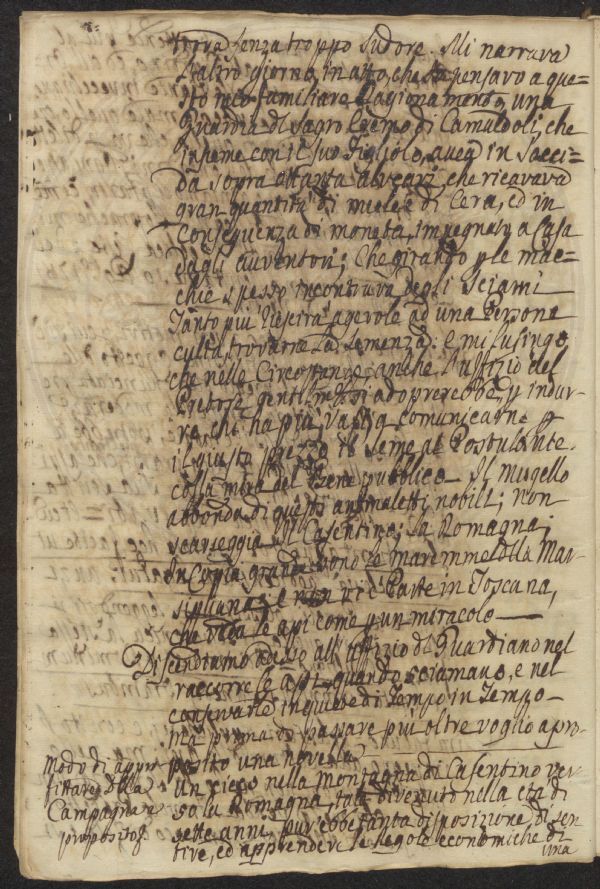 trova senza troppo sudore. Mi narrava
l'altro giorno, in atto, che sta pensavo a que=
sto mio familiare Ragionamento, una
Guardia del Sagro Eremo di Camaldoli, che
insieme con il suo Figliolo, aveva in Socci=
da sopra ottanta alveari, che ricavava
gran quantità di miele e di Cera, ed in
conseguenza di moneta, a Casa
dagli avventori; Che girando p le mac=
chie spesso incontrava degli Sciami
Tanto più riescirà agevole ad una Persona
culta trovarne la semenza: e mi lusingo,
che nelle Circostanze anche l'uffizio del
Pretose genti,
ra, chi ha più vasi a comunicarne p
il giusto prezzo il seme al Postulante
colla mira del Bene pubblico. Il Mugello
abbonda di questi animaletti nobili; non
scarseggia il Casentino; la Romagna;
In Copia grande sono le maremme della Mar-
e non vi è Parte in Toscana,
che le api come p un miracolo
Discendiamo adesso all'uffizio del Guardiano nel
raccorre le api quando sciamano, e nel
conservarle di Tempo in Tempo
ma prima di passare più oltre voglio a pro-
posito una novella
Modo di
fittare della
Campagna a
proposito
Un cieco nella Montagna di Casentino ver-
so la Romagna, tale divenuto nella età di
sette anni, pur ebbe tanta disposizione di sen
tire, ed apprendere le Regole economiche di
una